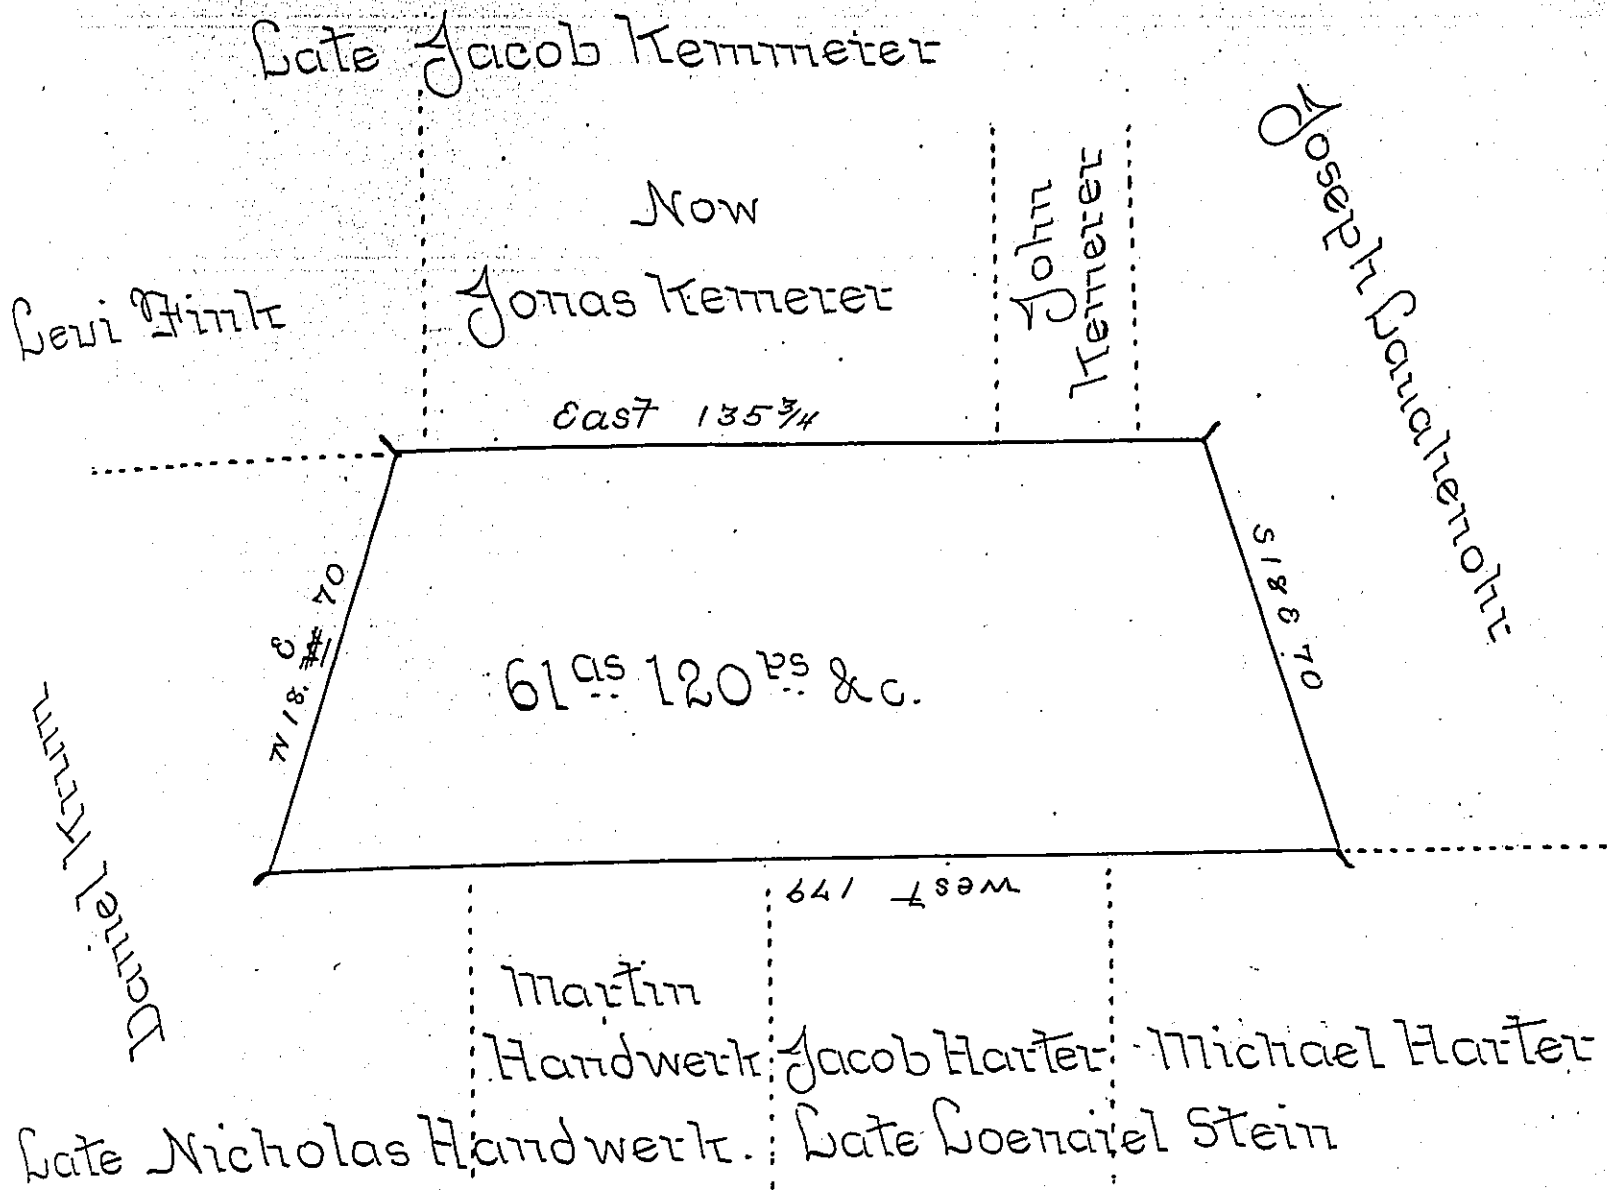 Late Jacob Kemmerer
Now
Jonas Kemerer
John
Kemerer
Joseph Lauchenohr
Levi Fink
East 135 3/4
N 18. E 70
S 18 E 70
61 as 120 ps &c.
Daniel Krum
West 179
Martin
Handwerk
Jacob Harter
Michael Harter
Late Nicholas Handwerk.
Late Loenaiel Stein